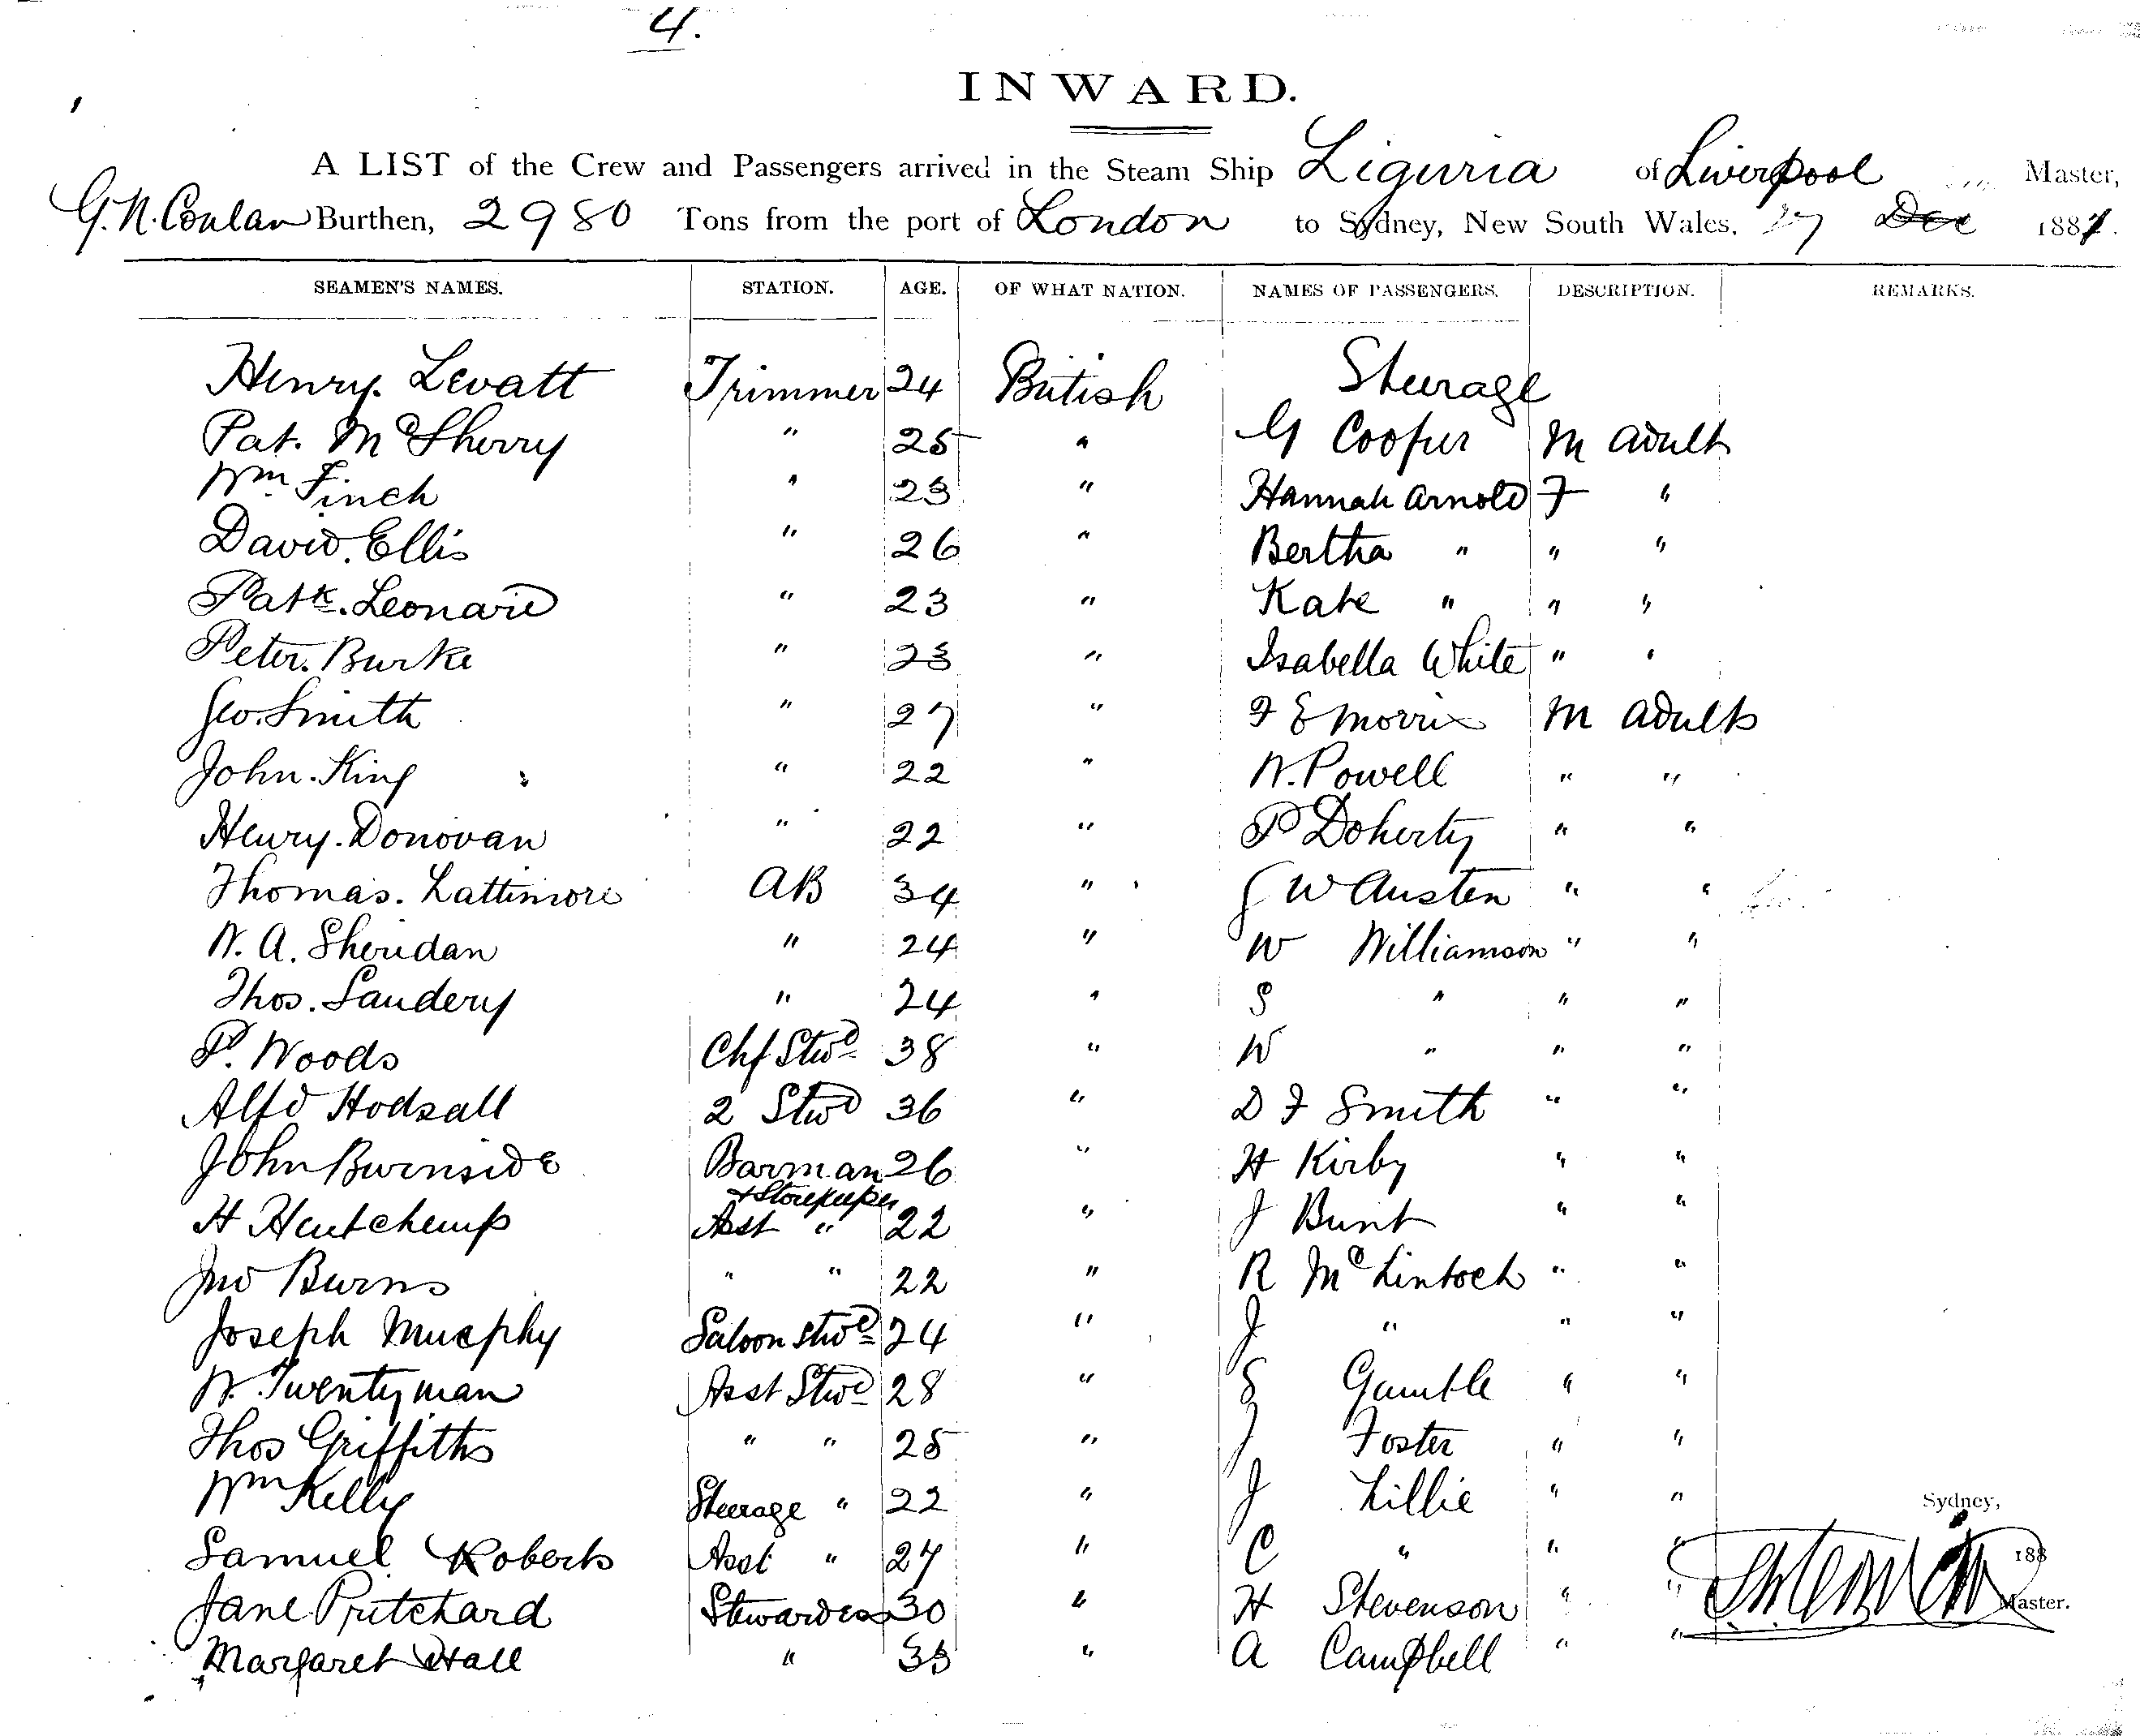 4.
INWARD.
A LIST of the Crew and Passengers arrived in the Steam Ship Liguria of Liverpool Master,
G.N. Conlan Burthen, 2980 Tons from the port of London to Sydney, New South Wales, 27 Dec 1887.
SEAMEN'S NAMES. STATION. AGE. OF WHAT NATION. NAMES OF PASSENGERS. DESCRIPTION. REMARKS.
Henry. Levatt Trimmer 24 British Steerage
Pat. McSherry " 25 " G Cooper M adult
Wm Finch " 23 " Hannah Arnold F "
David. Ellis " 26 " Bertha " " "
Patk. Leonard " 23 " Kate " " "
Peter. Burke " 23 " Isabella White " "
Geo. Smith " 27 " F E Morris M adults
John. King " 22 " W. Powell " "
Henry. Donovan " 22 " P Doherty " "
Thomas. Lattimore AB 34 " J W Austen " "
W. A. Sheridan " 24 " W Williamson " "
Thos. Sandery " 24 " S " " "
P. Woods Chf Stwd 38 " W " " "
Alfd Hodsall 2 Stwd 36 " D F Smith " "
John Burnside Barman 26 " H Kirby " "
& Storekeeper
H Hentchemp Asst " 22 " J Bunt " "
Jno Burns " " 22 " R McLintock " "
Joseph Murphy Saloon Stwd 24 " J " " "
W. Twentyman Asst Stwd 28 " S Gamble " "
Thos Griffiths " " 25 " J Foster " "
Wm Kelly Steerage " 22 " J Lillie " "
Sydney,
Samuel Roberts Asst " 27 " C " " "
188
Jane Pritchard Stewardess 30 " H Stevenson " "
Master.
Margaret Hall " 33 " A Campbell " "